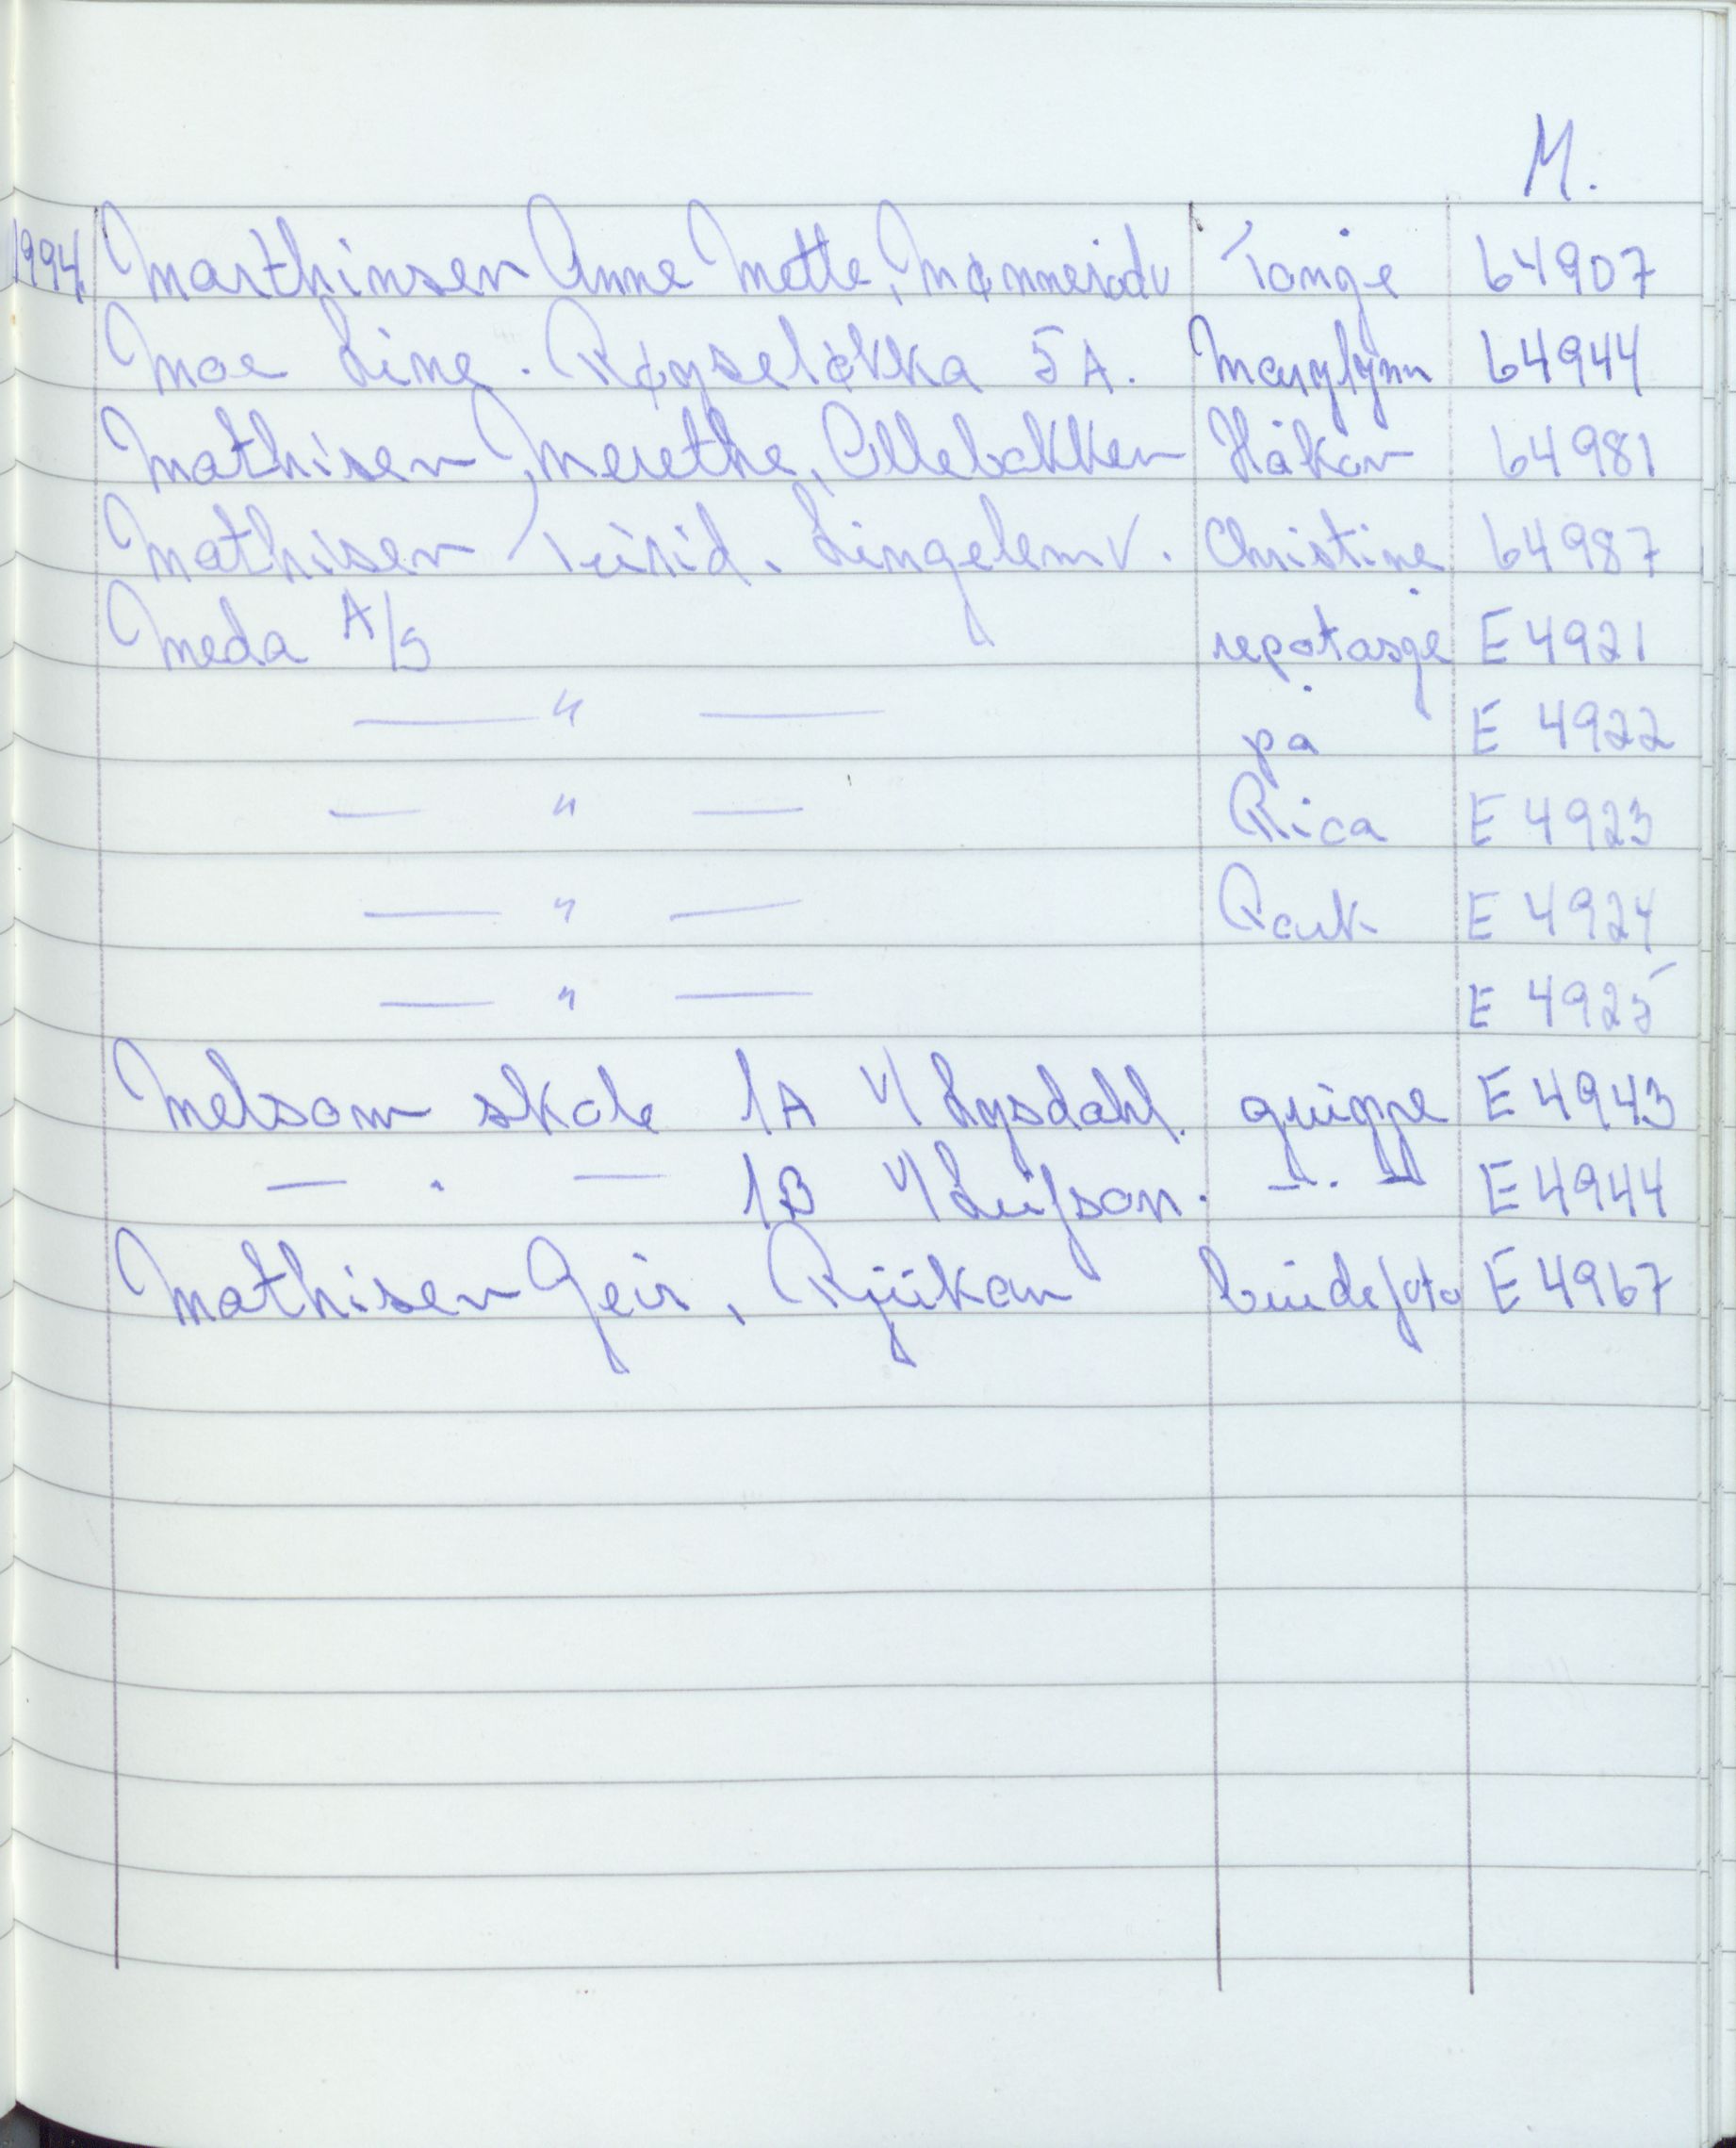 M.
1994. Marthinsen Anne Mette, Mønnerødv Tonje 64907
Moe Line. Røyseløkka 5A. Marylynn 64944
Mathisen Merethe, Ollebakken Håkon 64981
Mathisen Turid. Lingelemv. Christine 64987
Meda A/S repotasje E 4921
— " — på E 4922
— " — Rica E 4923
— " — Park E 4924
— " — E 4925
Melsom skole 1A v/ Lysdahl. gruppe E 4943
— . — 1B v/ Leifson. — . — E 4944
Mathisen Geir, Rjukan brudefoto E 4967